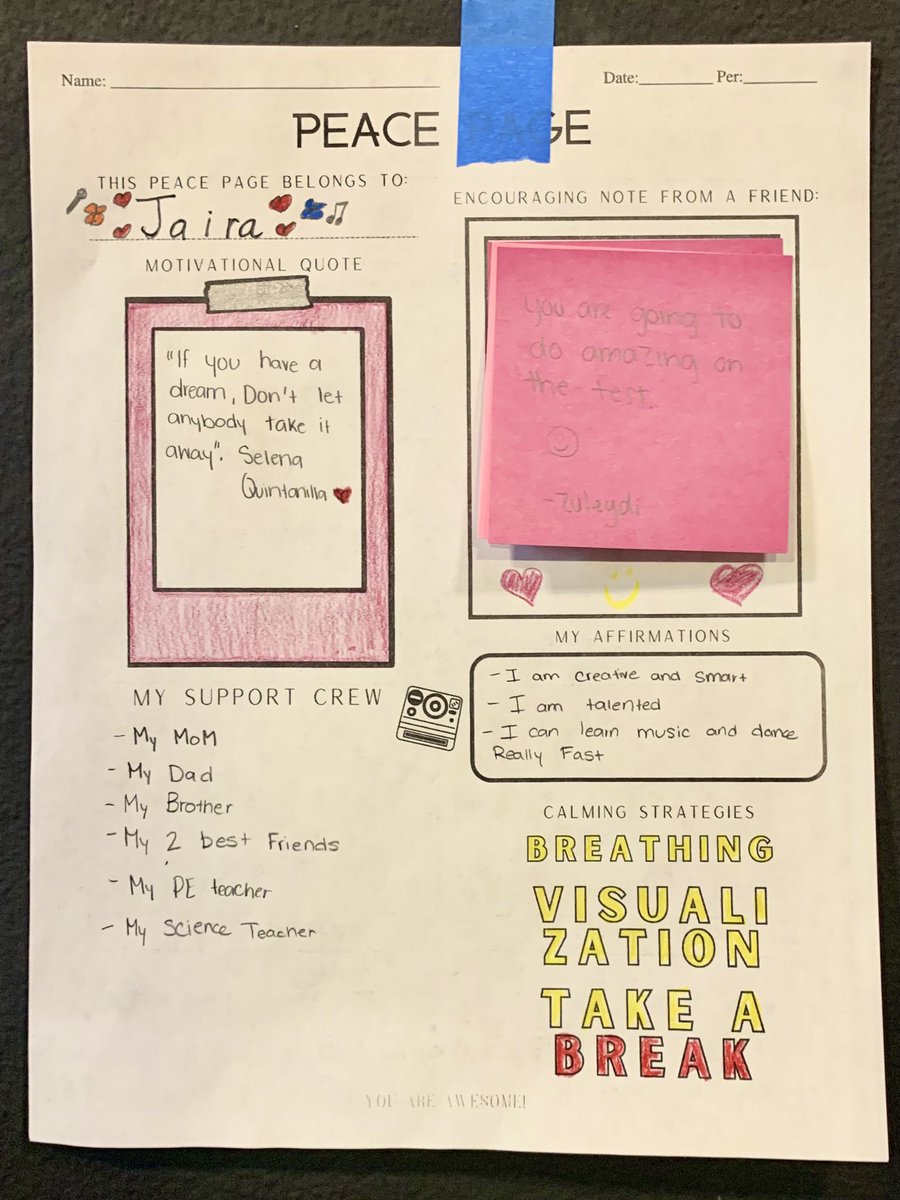 Name:
Date: Per:
PEACE PAGE
THIS PEACE PAGE BELONGS TO:
Jaira
MOTIVATIONAL QUOTE
"If you have a
dream, Don't let
anybody take it
away". Selena
Quintanilla
MY SUPPORT CREW
- My MoM
- My Dad
- My Brother
- My 2 best Friends
- My PE teacher
- My Science Teacher
ENCOURAGING NOTE FROM A FRIEND:
you are going to
do amazing on
the test.
-Zuleydi
MY AFFIRMATIONS
- I am creative and smart
- I am talented
- I can learn music and dance
Really Fast
CALMING STRATEGIES
BREATHING
VISUALI
ZATION
TAKE A
BREAK
YOU ARE AWESOME!